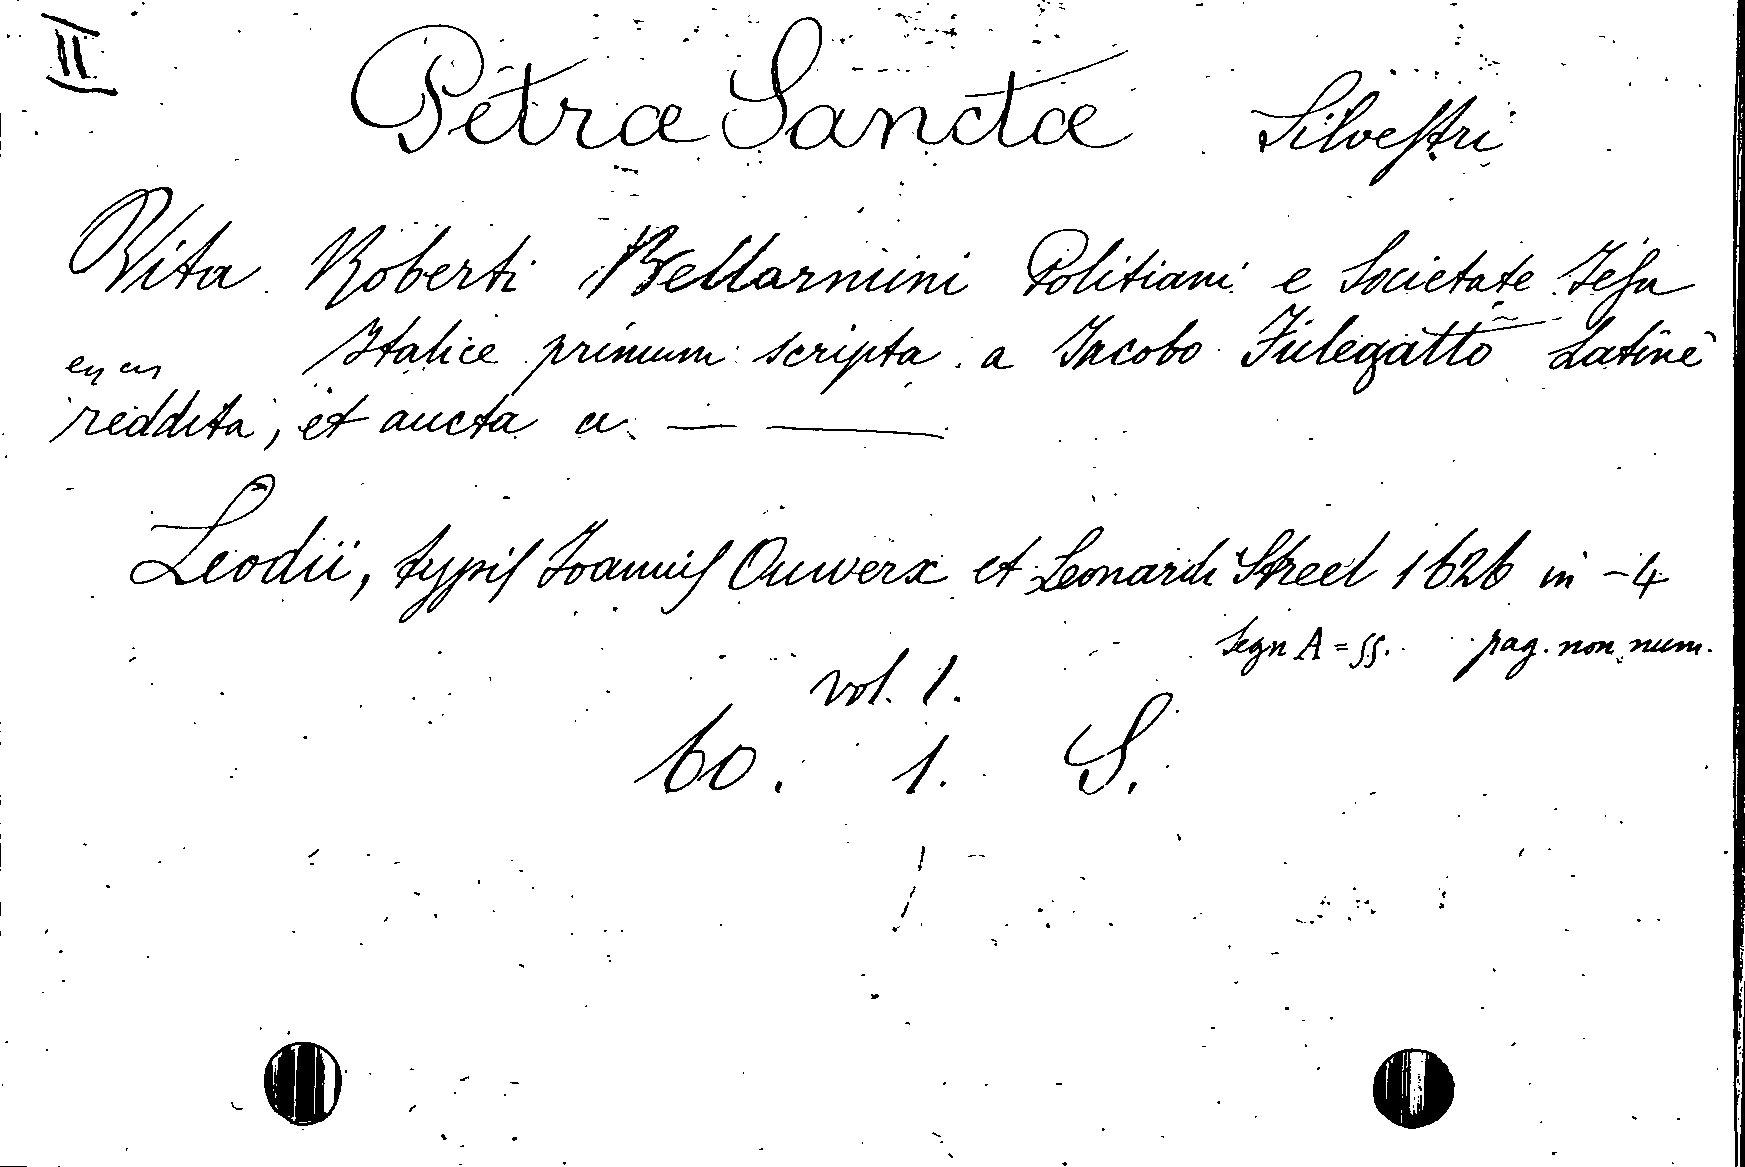 II
Petræ Sanctæ Silvestri
Vita Roberti Bellarmini Politiani e Societate Jesu
Italice primum scripta a Jacobo Fuligatto Latine
reddita, et aucta a — ——
Leodii, typis Joannis Ouwerx et Leonardi Streel 1626 in-4
segn A=SS. pag. non num.
vol. 1.
60. 1. S.